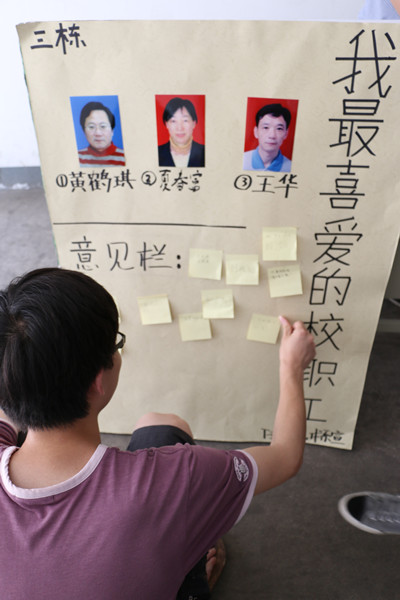 三栋
我最喜爱的校职工
①黄鹤琪 ②夏春富 ③王华
意见栏: